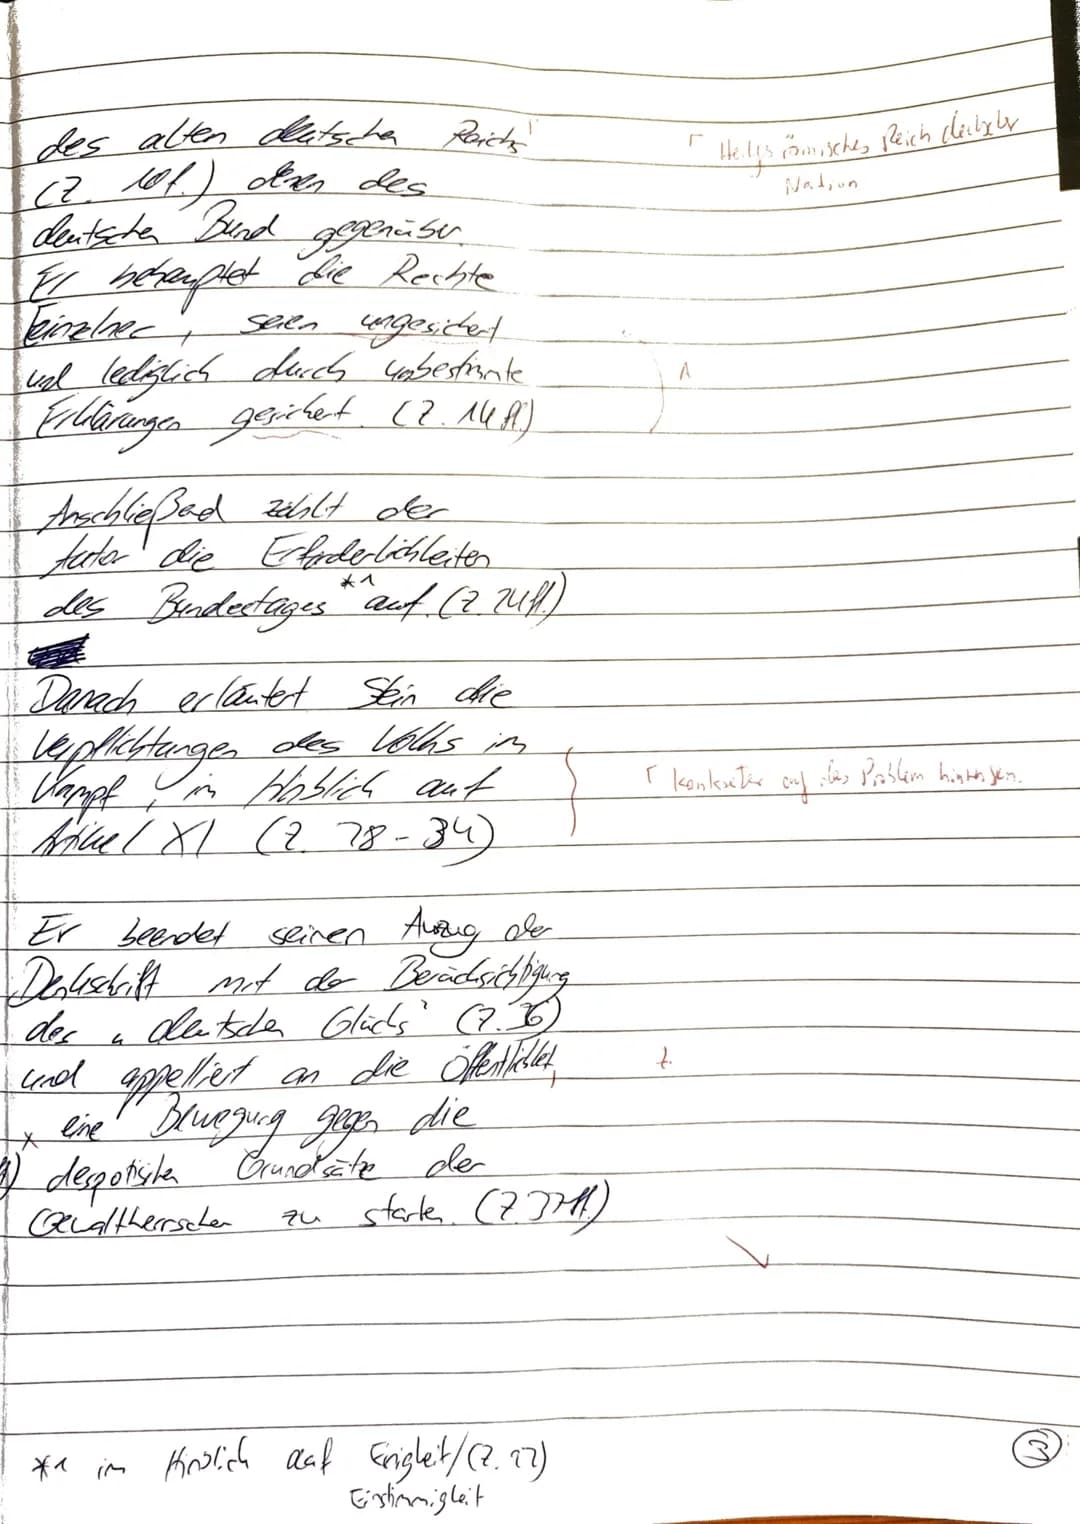 des alten deutschen Reichs'
(Z. 10f.) denen des
deutschen Bund gegenüber.
Er behauptet die Rechte
Einzelner, seien ungesichert
und lediglich durch unbestimmte
Erklärungen gesichert. (Z. 14ff.)
Γ Heilges römisches Reich deutscher
Nation
Anschließend zählt der
Autor die Erforderlichkeiten
des Bundestages *1 auf. (Z. 24ff.)
Danach erläutert Stein die
Verpflichtungen des Volks im
Kampf, im Hinblick auf
Artikel XI (Z. 28-34)
Γ konkreter auf das Problem hinweisen.
Er beendet seinen Auzug der
Denkschrift mit der Berücksichtigung
des "deutschen Glücks" (Z. 36)
und appelliert an die Öffentlichkeit,
Z.
x eine Bewegung gegen die
despotischen Grundsätze der
Gewaltherrscher zu starten. (Z. 37ff.)
*1 im Hinblick auf Einigkeit/(Z. 22)
Einstimmigkeit
3